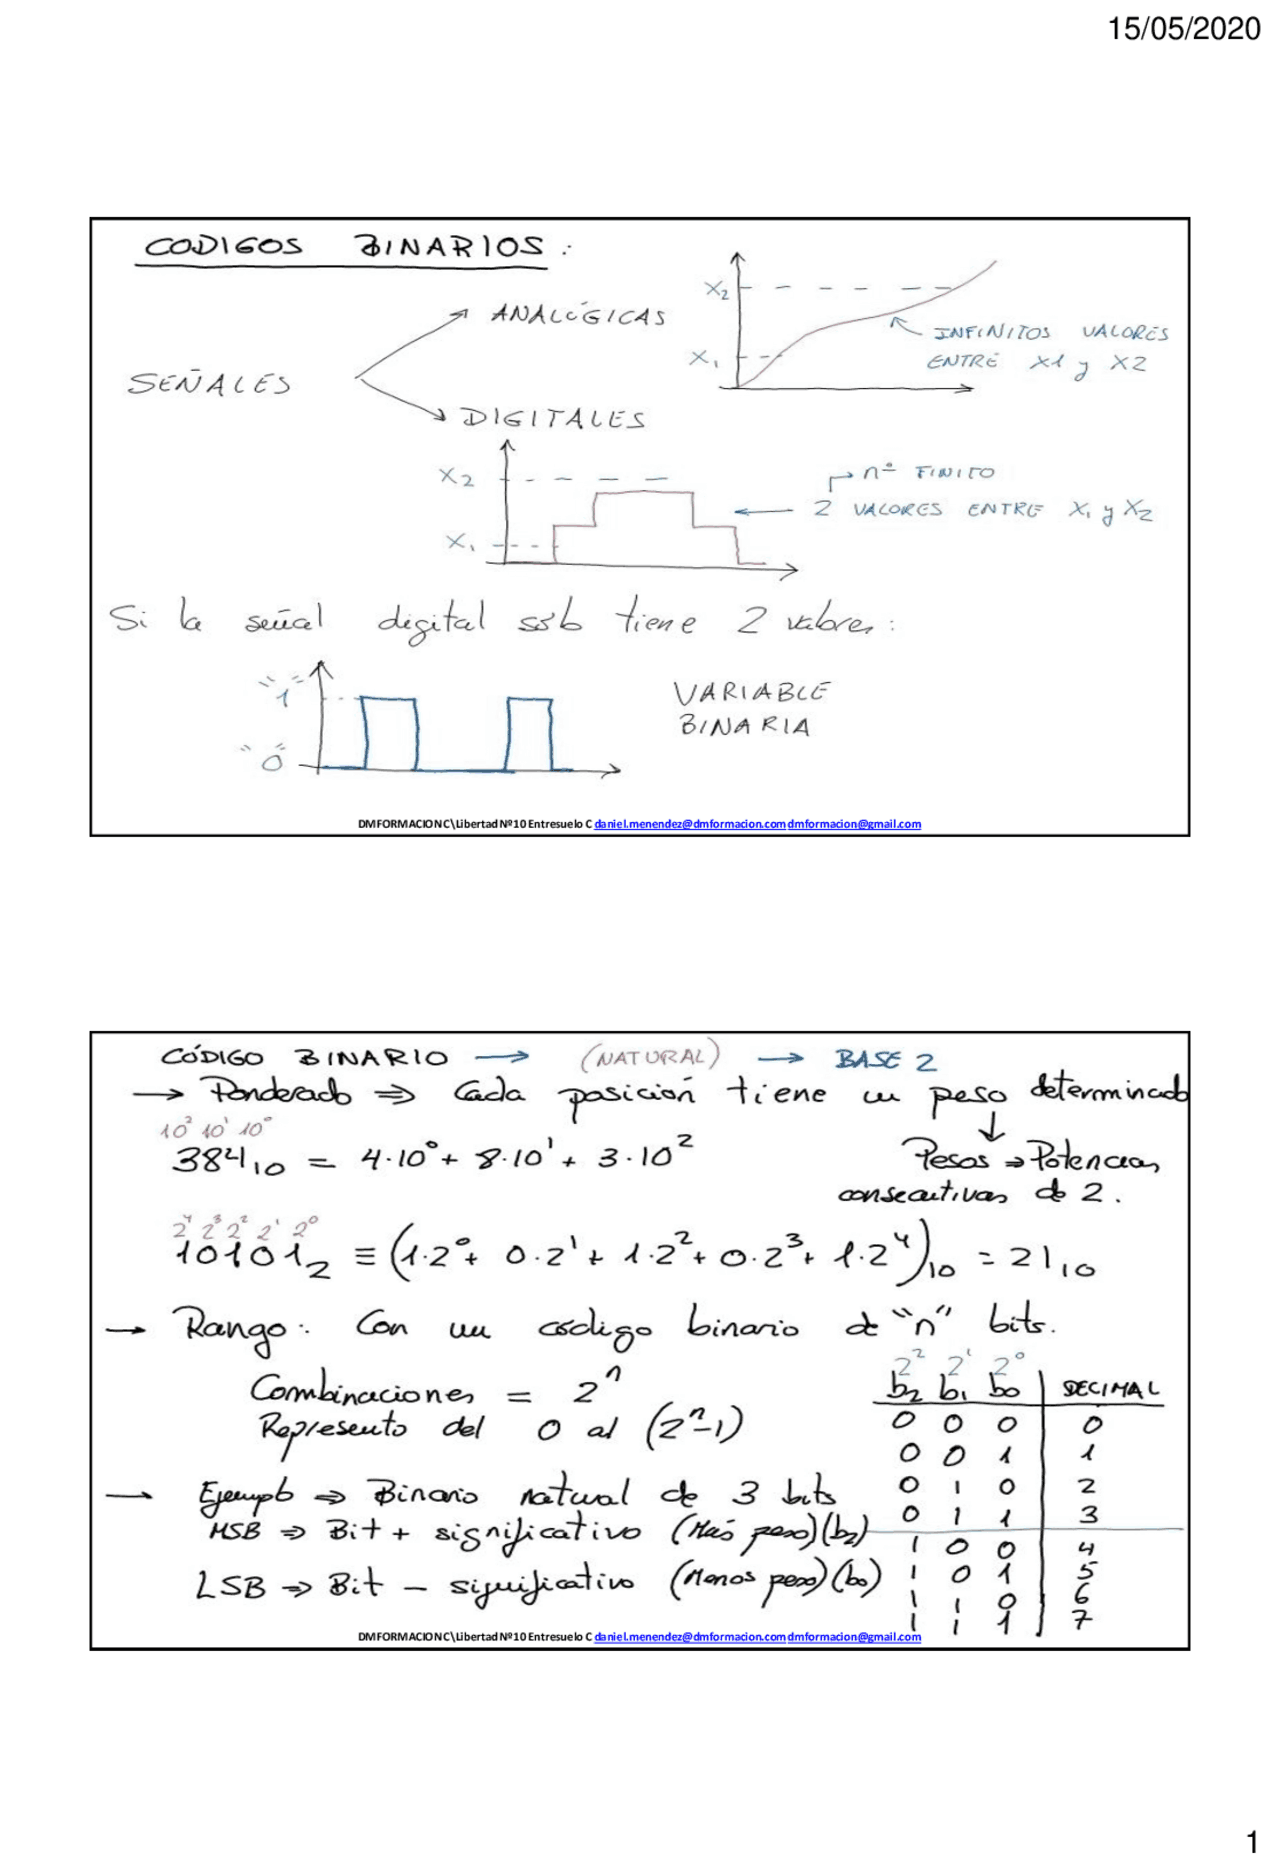 15/05/2020
CODIGOS BINARIOS:
X2
ANALÓGICAS
INFINITOS VALORES
X1
ENTRE X1 y X2
SEÑALES
DIGITALES
X2
nº FINITO
2 VALORES ENTRE X1 y X2
X1
Si la señal digital sólo tiene 2 valores:
"1"
VARIABLE
BINARIA
"0"
DMFORMACION C\Libertad Nº10 Entresuelo C daniel.menendez@dmformacion.com dmformacion@gmail.com
CÓDIGO BINARIO → (NATURAL) → BASE 2
→ Ponderado ⇒ Cada posición tiene un peso determinado
↓
10² 10¹ 10⁰
384₁₀ = 4·10⁰ + 8·10¹ + 3·10²
Pesos ⇒ Potencias
consecutivas de 2.
2⁴ 2³ 2² 2¹ 2⁰
10101₂ ≡ (1·2⁰ + 0·2¹ + 1·2² + 0·2³ + 1·2⁴)₁₀ = 21₁₀
→ Rango: Con un código binario de "n" bits.
Combinaciones = 2ⁿ
Represento del 0 al (2ⁿ-1)
→ Ejemplo ⇒ Binario natural de 3 bits
MSB ⇒ Bit + significativo (Más peso) (b2)
LSB ⇒ Bit - significativo (Menos peso) (b0)
2² 2¹ 2⁰
b2 b1 b0 | DECIMAL
0 0 0 | 0
0 0 1 | 1
0 1 0 | 2
0 1 1 | 3
1 0 0 | 4
1 0 1 | 5
1 1 0 | 6
1 1 1 | 7
DMFORMACION C\Libertad Nº10 Entresuelo C daniel.menendez@dmformacion.com dmformacion@gmail.com
1